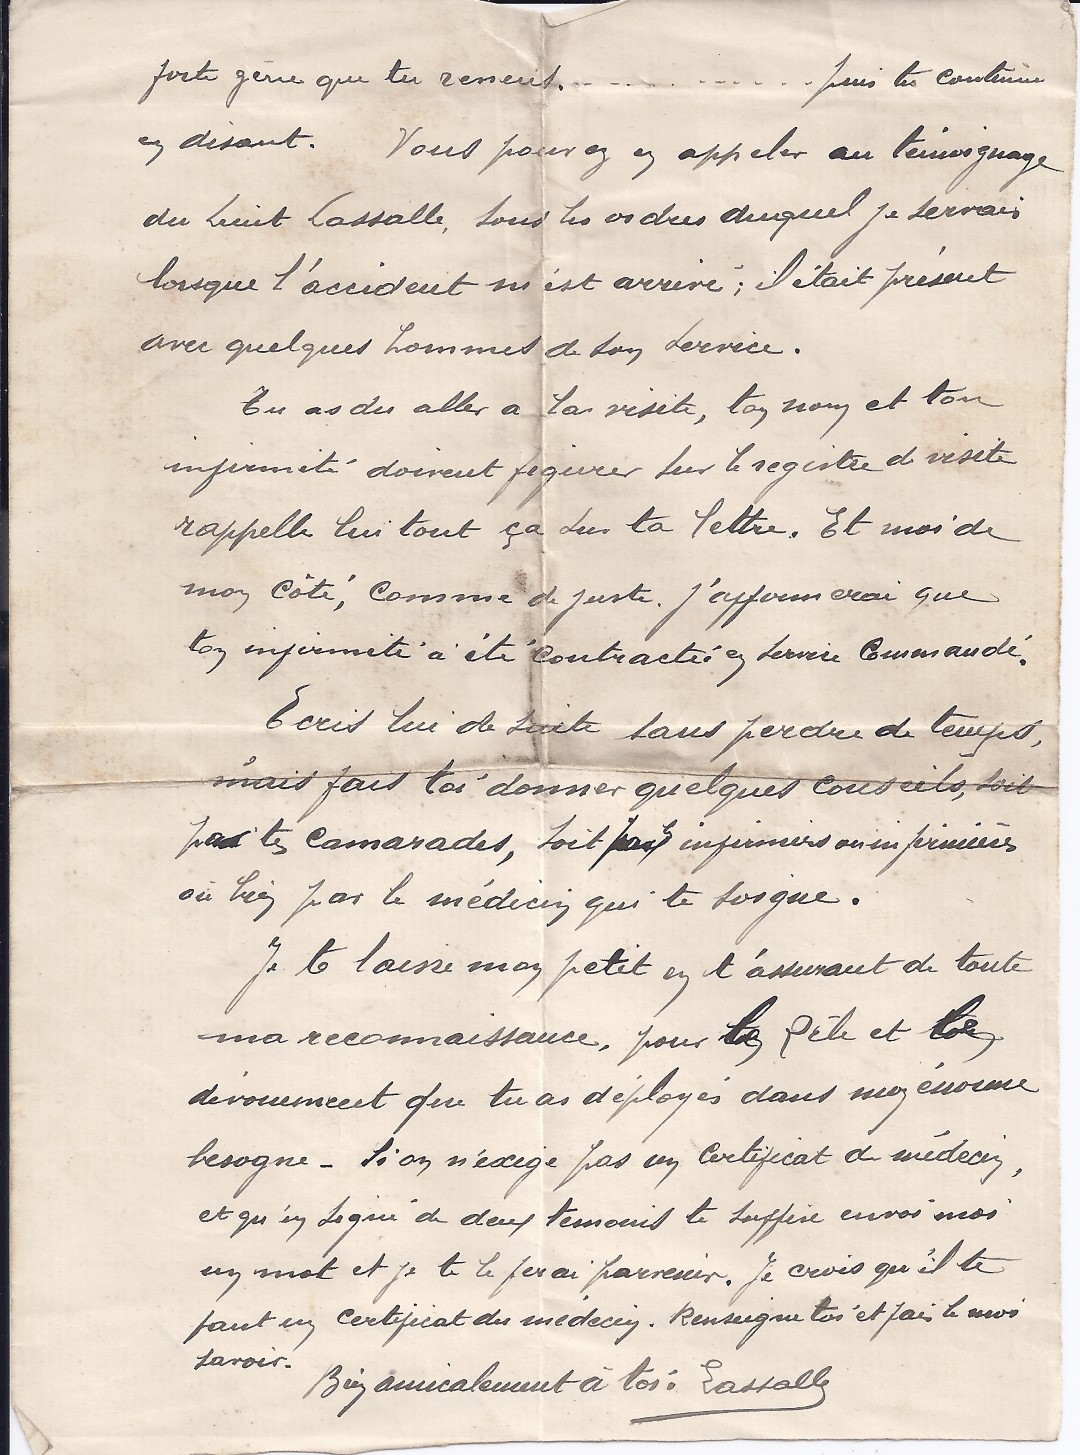 forte gêne que tu ressens. . . . . . . . . . . . puis tu continue
en disant. Vous pourez en appeler au témoignage
du Lieut Lassalle, sous les ordres duquel je servais
lorsque l'accident m'est arrivé ; il était présent
avec quelques hommes de son service.
Tu as du aller a la visite, ton nom et ton
infirmité doivent figurer sur le registre de visite
rappelle lui tout ça sur ta lettre. Et moi de
mon côté, comme de juste. j'affirmerai que
ton infirmité a été contractée en service commandé.
Ecris lui de suite sans perdre de temps,
mais fais toi donner quelques conseils, soit
par tes camarades, soit par infirmiers ou infirmières
ou bien par le médecin qui te soigne.
Je te laisse mon petit en t'assurant de toute
ma reconnaissance, pour le zèle et le
dévouement que tu as déployés dans mon énorme
besogne - Si on n'exige pas un certificat de médecin,
et qu'un signé de deux temoins te suffire envoi moi
un mot et je te le ferai parvenir. Je crois qu'il te
faut un certificat du médecin. Renseigne toi et fais le moi
savoir.
Bien amicalement à toi. Lassalle